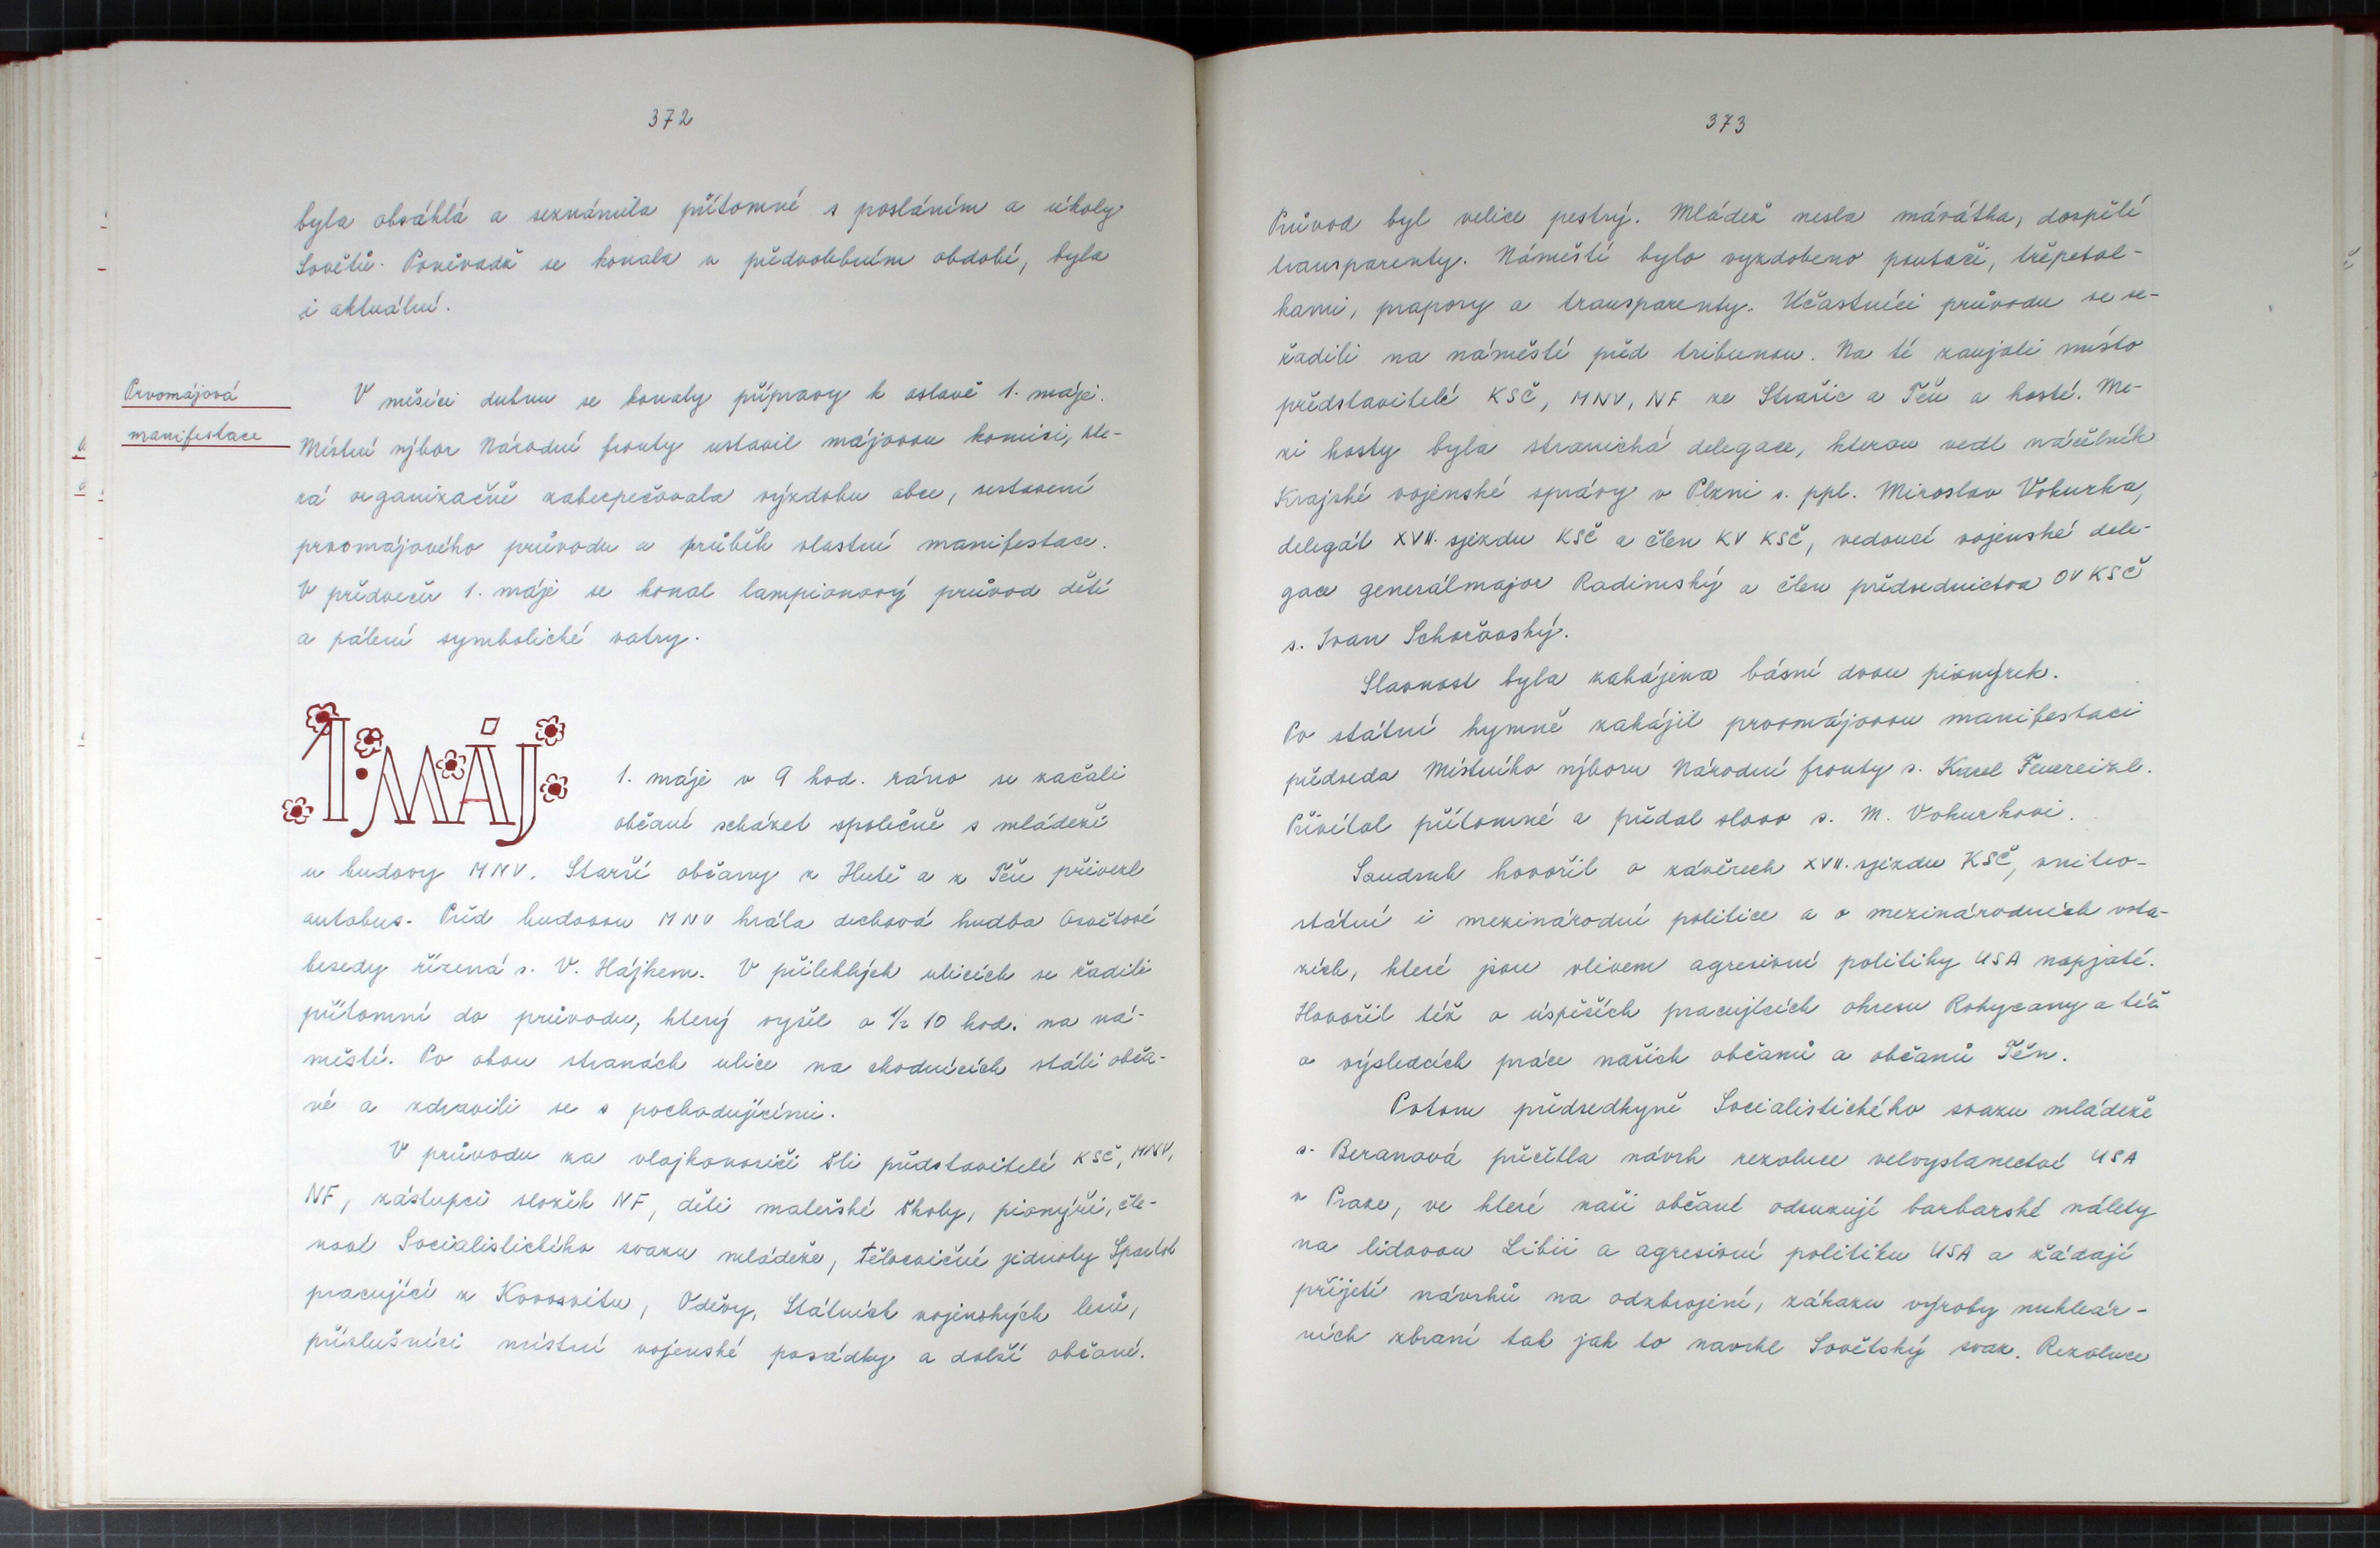 372
byla obsáhlá a seznámila přítomné s posláním a úkoly
Sovětů. Poněvadž se konala v předvolebním období, byla
i aktuální.
Prvomájová
manifestace
V měsíci dubnu se konaly přípravy k oslavě 1. máje.
Místní výbor Národní fronty ustavil májovou komisi, kte-
rá organizačně zabezpečovala výzdobu obce, sestavení
prvomájového průvodu a průběh vlastní manifestace.
V předvečer 1. máje se konal lampionový průvod dětí
a pálení symbolické vatry.
1. MÁJ
1. máje v 9 hod. ráno se začali
občané scházet společně s mládeží
u budovy MNV. Starší občany z Hutě a z Těn přivezl
autobus. Před budovou MNV hrála dechová hudba Osvětové
besedy řízená s. V. Hájkem. V přilehlých ulicích se řadili
přítomní do průvodu, který vyšel o 1/2 10 hod. na ná-
městí. Po obou stranách ulice na chodnících stáli obča-
né a zdravili se s pochodujícími.
V průvodu za vlajkonosiči šli představitelé KSČ, MNV,
NF, zástupci složek NF, děti mateřské školy, pionýři, čle-
nové Socialistického svazu mládeže, Tělovičné jednoty Spartak
pracující z Kovosvitu, Oděvy, Státních vojenských lesů,
příslušníci místní vojenské posádky a další občané.
373
Průvod byl velice pestrý. Mládež nesla mávátka, dospělí
transparenty. Náměstí bylo vyzdobeno poutači, třepetal-
kami, prapory a transparenty. Účastníci průvodu se se-
řadili na náměstí před tribunou. Na té zaujali místo
představitelé KSČ, MNV, NF ze Strašic a Těn a hosté. Me-
zi hosty byla stranická delegace, kterou vedl náčelník
Krajské vojenské správy v Plzni s. ppl. Miroslav Vokurka,
delegát XVII. sjezdu KSČ a člen KV KSČ, vedoucí vojenské dele-
gace generálmajor Radimský a člen předsednictva OV KSČ
s. Ivan Schořovský.
Slavnost byla zahájena básní dvou pionýrek.
Po státní hymně zahájil prvomájovou manifestaci
předseda Místního výboru Národní fronty s. Karel Feuereizl.
Přivítal přítomné a předal slovo s. M. Vokurkovi.
Soudruh hovořil o závěrech XVII. sjezdu KSČ, vnitro-
státní i mezinárodní politice a o mezinárodních vzta-
zích, které jsou vlivem agresivní politiky USA napjaté.
Hovořil též o úspěších pracujících okresu Rokycany a též
o výsledcích práce našich občanů a občanů Těn.
Potom předsedkyně Socialistického svazu mládeže
s. Beranová přečetla návrh rezoluce velvyslanectví USA
v Praze, ve které naši občané odsuzují barbarské nálety
na lidovou Libii a agresivní politiku USA a žádají
přijetí návrhů na odzbrojení, zákazu výroby nukleár-
ních zbraní tak jak to navrhl Sovětský svaz. Rezoluce